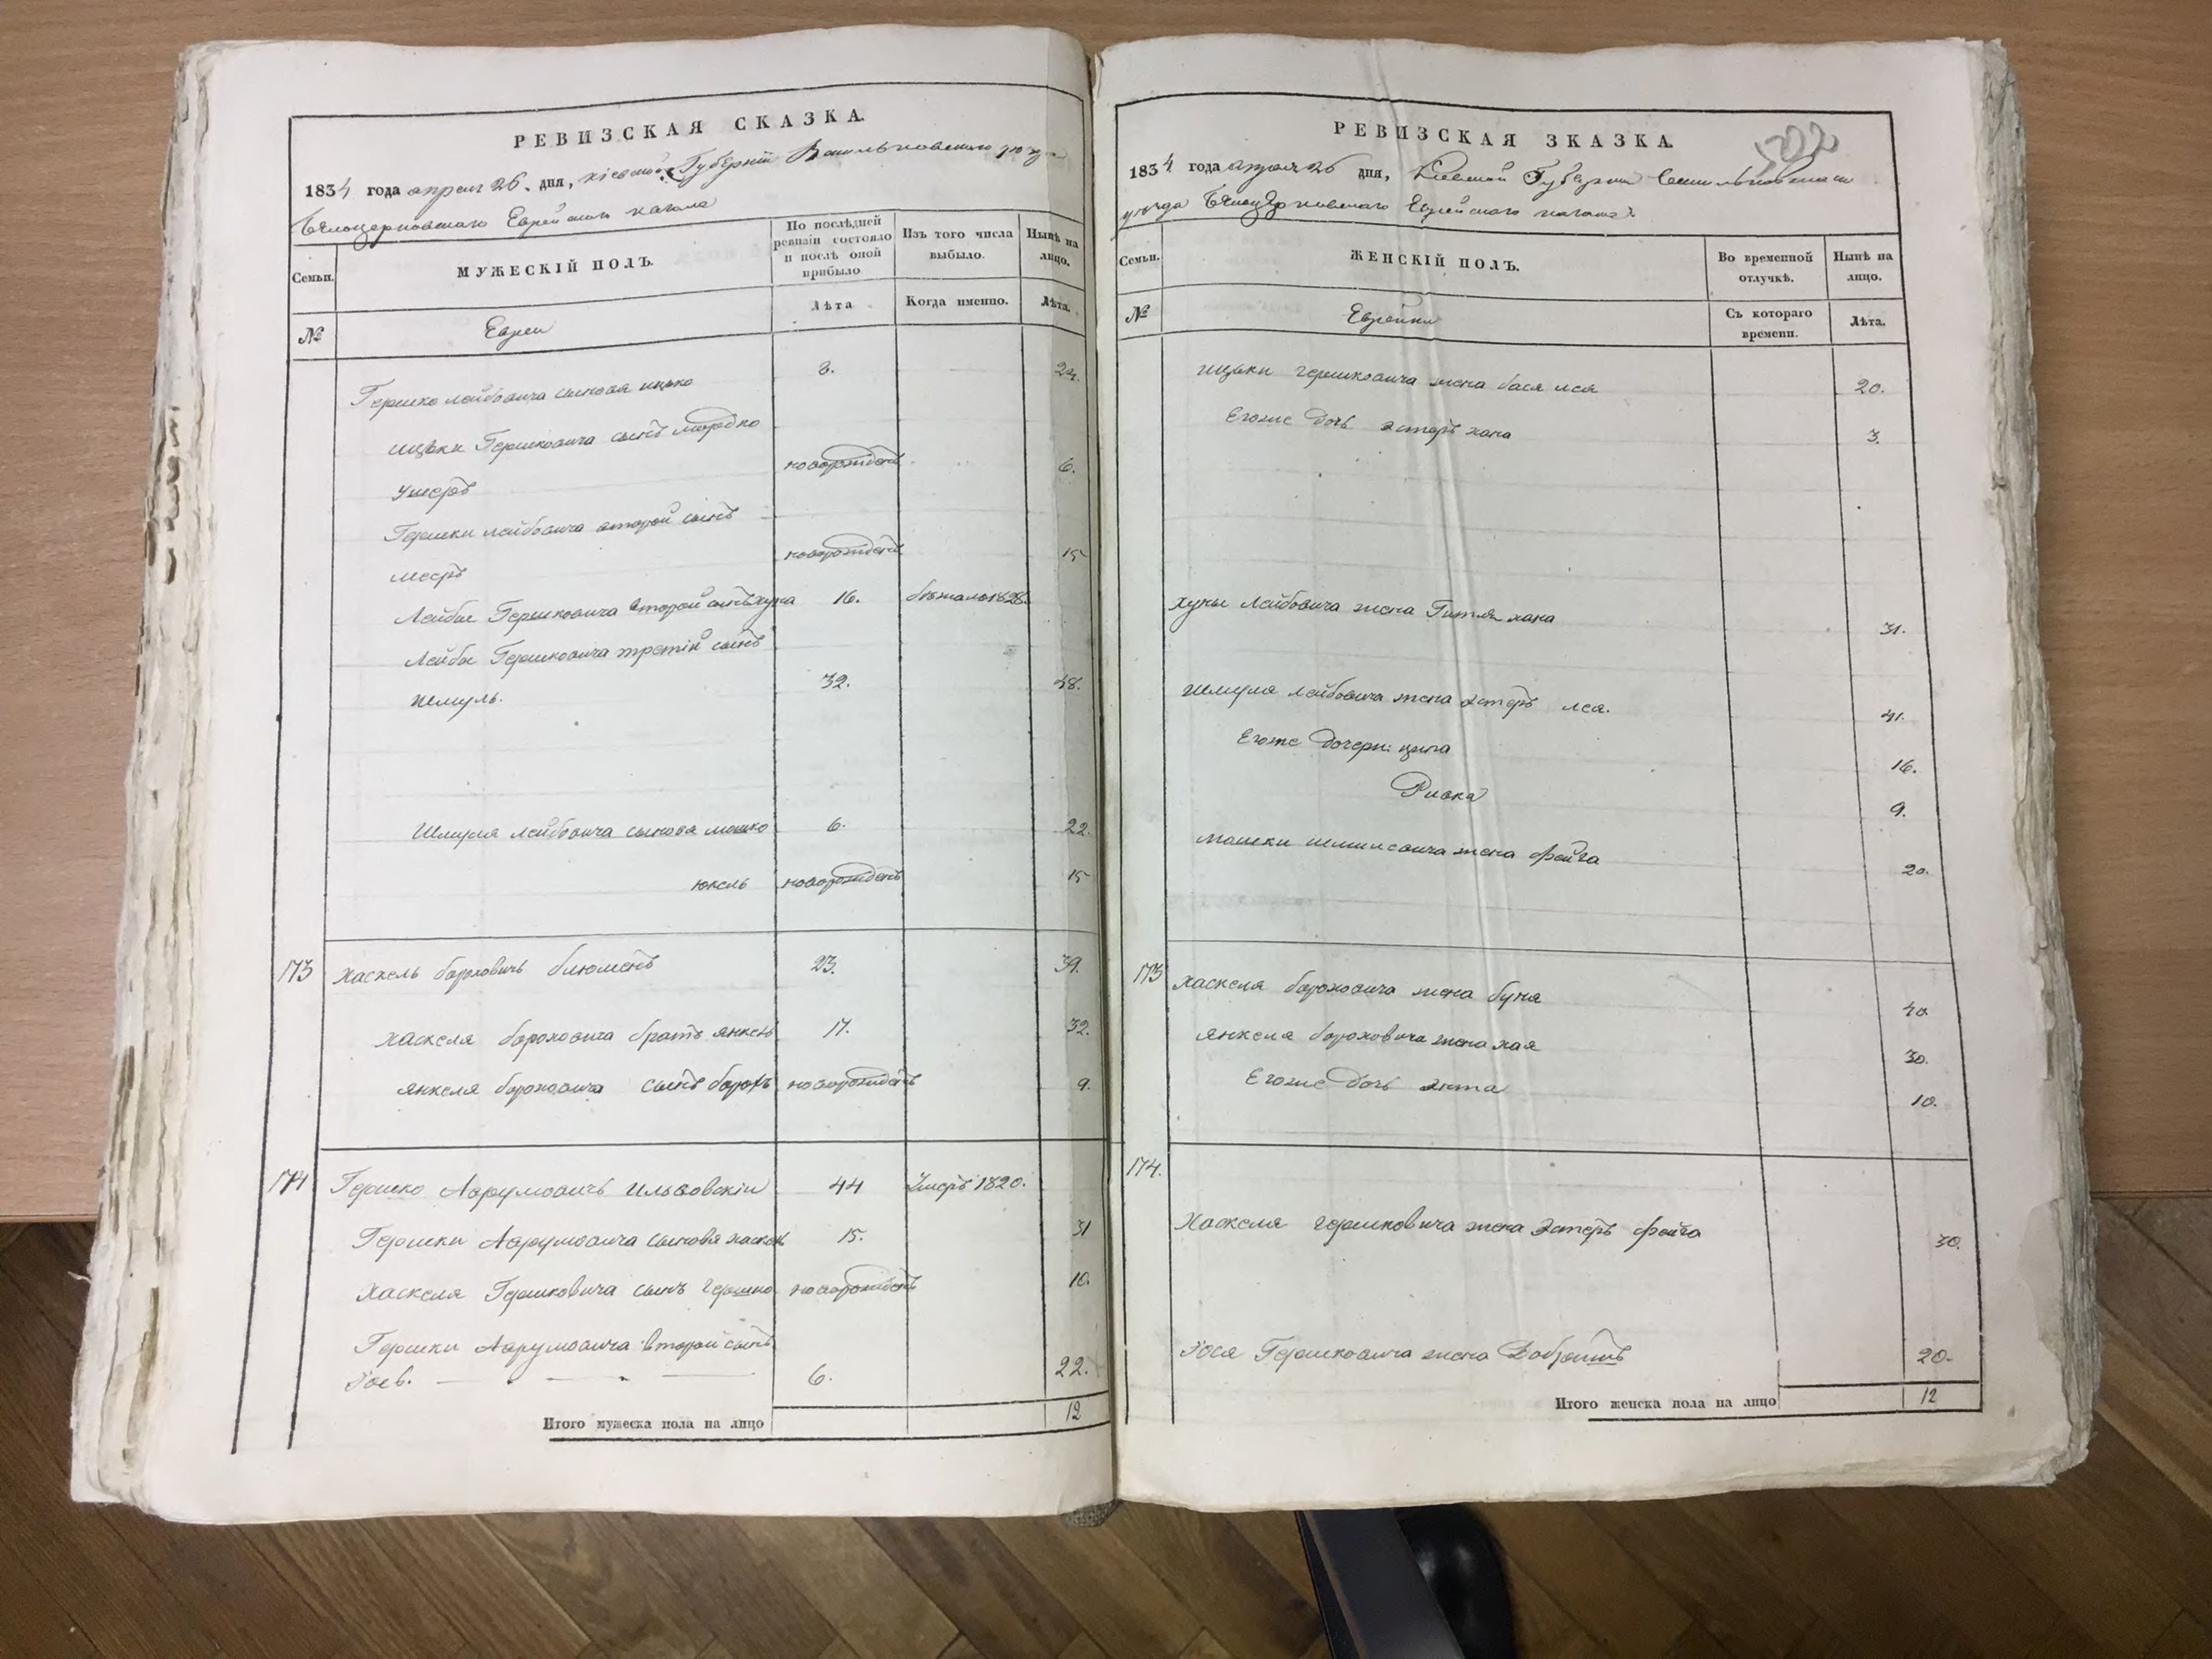 РЕВИЗСКАЯ СКАЗКА.
1834 года апреля 26. дня, Кіевской Губерніи Васильковского уезда
Бѣлоцерковскаго Еврейского кагала
Семьи.
МУЖЕСКІЙ ПОЛЪ.
По послѣдней ревизіи состояло и послѣ оной прибыло
Изъ того числа выбыло.
Нынѣ на лицо.
Лѣта
Когда именно.
Лѣта.
№
Евреи
Гершко Лейбовича сыновья ицько 8. 24.
ицьки Гершковича сынъ мордко
умеръ новорожденъ 6.
Гершки лейбовича второй сынъ
мееръ новорожденъ 15
Лейбы Гершковича второй сынъ хуна 16. бежалъ 1828.
Лейбы Гершковича третій сынъ
шмуль. 32. 48.
Шмуля лейбовича сыновя мошко 6. 22.
юкель новорожденъ 15
173 хаскель бороховичь блюменъ 23. 39.
хаскеля бороховича братъ янкель 17. 32.
янкеля бороховича сынъ борохъ новорожденъ 9.
174 Гершко Аврумовичь Ильвовскій 44 Умеръ 1820.
Гершки Аврумовича сыновя хаскель 15. 31
Хаскеля Гершковича сынъ гершко новорожденъ 10.
Гершки Аврумовича второй сынъ
Іось. 6. 22.
Итого мужеска пола на лицо 12
РЕВИЗСКАЯ ЗКАЗКА.
502
1834 года апреля 26 дня, Киевской Губернии Васильковскаго
уезда Белоцерковского Еврейского кагала
Семьи.
ЖЕНСКІЙ ПОЛЪ.
Во временной отлучкѣ.
Нынѣ на лицо.
№
Еврейки
Съ котораго времени.
Лѣта.
ицьки гершковича жена бася лея 20.
Егоже дочь эстеръ хана 3.
хуны Лейбовича жена Гитля хана 31.
шмуля лейбовича жена эстеръ лея. 41.
Егоже дочери: ципа 16.
Ривка 9.
мошки шмулевича жена фейга 20.
173 хаскеля бороховича жена буня 40
янкеля бороховича жена хая 30.
Егоже дочь энта 10.
174. Хаскеля гершковича жена Эстеръ фейга 30.
Іося Гершковича жена Добришъ 20.
Итого женска пола на лицо 12